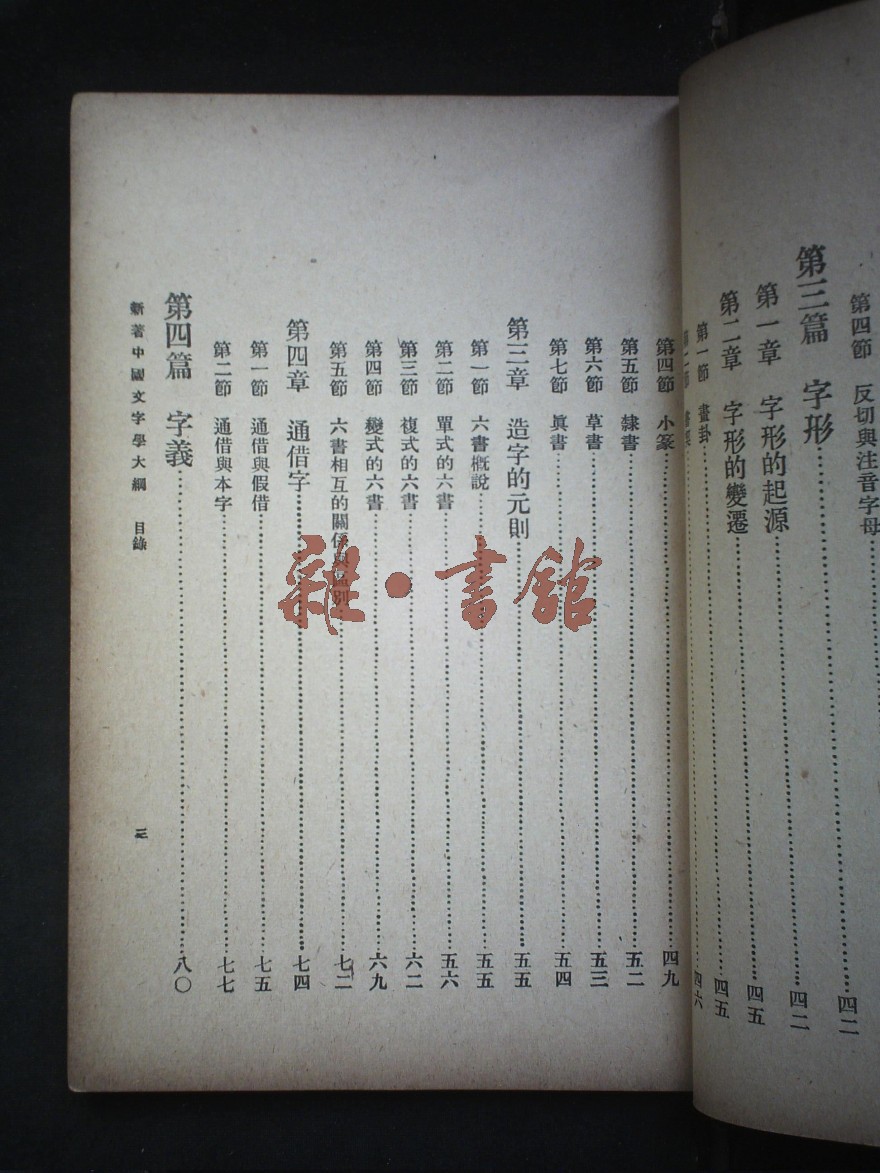 第四節 反切與注音字母
第三篇 字形……四二
第一章 字形的起源……四二
第二章 字形的變遷……四五
第一節 畫卦……四五
四六
第四節 小篆……四九
第五節 隸書……五二
第六節 草書……五三
第七節 眞書……五四
第三章 造字的元則……五五
第一節 六書概說……五五
第二節 單式的六書……五六
第三節 複式的六書……六二
第四節 變式的六書……六九
第五節 六書相互的關係與區別……七二
第四章 通借字……七四
第一節 通借與假借……七五
第二節 通借與本字……七七
第四篇 字義……八〇
新著中國文字學大綱 目錄 三
雜·書館